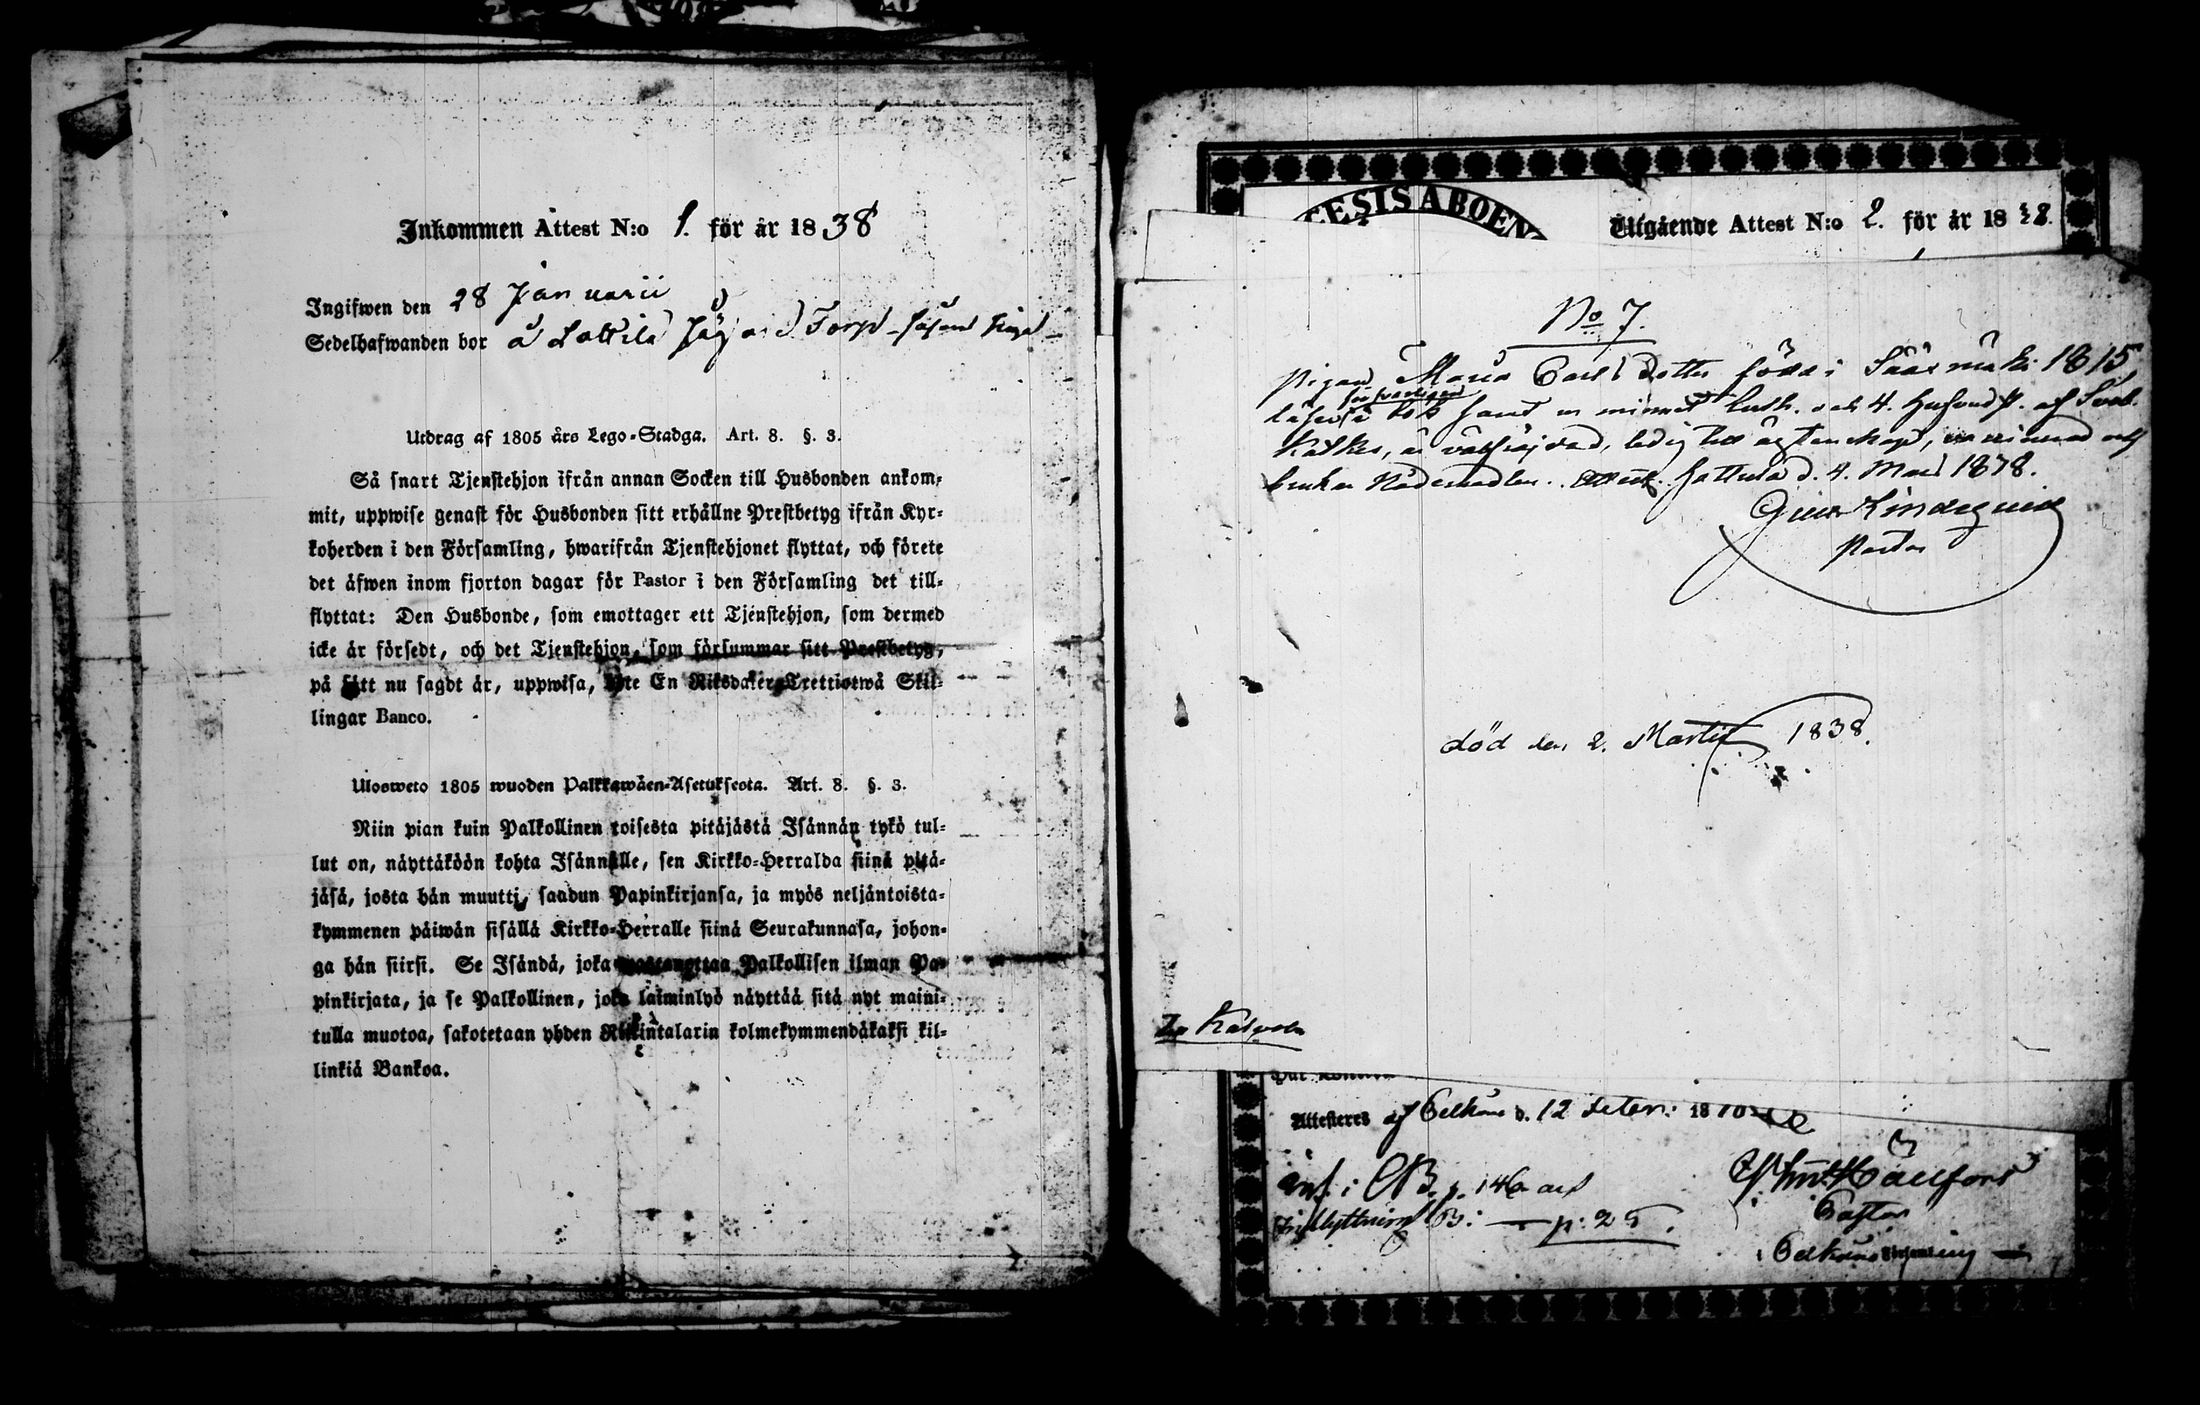 Inkommen Attest N:o 1. för år 1838
Ingifwen den 28 Januarii
Sedelhafwanden bor å Lottila Torp
Utdrag af 1805 års Lego-Stadga. Art. 8. §. 3.
Så snart Tjenstehjon ifrån annan Socken till Husbonden ankom-
mit, uppwise genast för Husbonden sitt erhållne Prestbetyg ifrån Kyr-
koherden i den Församling, hwarifrån Tjenstehjonet flyttat, och förete
det äfwen inom fjorton dagar för Pastor i den Församling det till-
flyttat: Den Husbonde, som emottager ett Tjenstehjon, som dermed
icke är försedt, och det Tjenstehjon, som försummar sitt Prestbetyg,
på sätt nu sagdt är, uppwisa, böte En Riksdaler Trettiotwå Skil-
lingar Banco.
Ulosweto 1805 wuoden Palkkawäen-Asetuksesta. Art. 8. §. 3.
Niin pian kuin Palkollinen toisesta pitäjästä Isännän tykö tul-
lut on, näyttäköön kohta Isännälle, sen Kirkko-Herralda siinä pitä-
jäsä, josta hän muutti, saadun Papinkirjansa, ja myös neljäntoista-
kymmenen päiwän sisällä Kirkko-Herralle siinä Seurakunnasa, johon-
ga hän siirsi. Se Isändä, joka wastanottaa Palkollisen ilman Pa-
pinkirjata, ja se Palkollinen, joka laiminlyö näyttää sitä nyt maini-
tulla muotoa, sakotetaan yhden Riikintalarin kolmekymmendäkaksi kil-
linkiä Bankoa.
ESIS ABOEN
Utgående Attest N:o 2. för år 18
No 7.
Pigan Maria Carlsdotter född i Sääxmäki 1815,
försvarligen
läser i bok samt ur minnet Luth. och 4. Hufvudst. af Sveb.
Katkes, är välfräjdad, ledig till ägtenskap, och
brukar Nådemedlen. Attest. Hattula d. 4. Mars 1838.
Lindequist
Pastor
död den 2. Martii 1838.
Kalvola
Attesteres af d. 12 18
inf. i CB. p. 146 och
Inflyttnings B: — p: 25.
Pastor